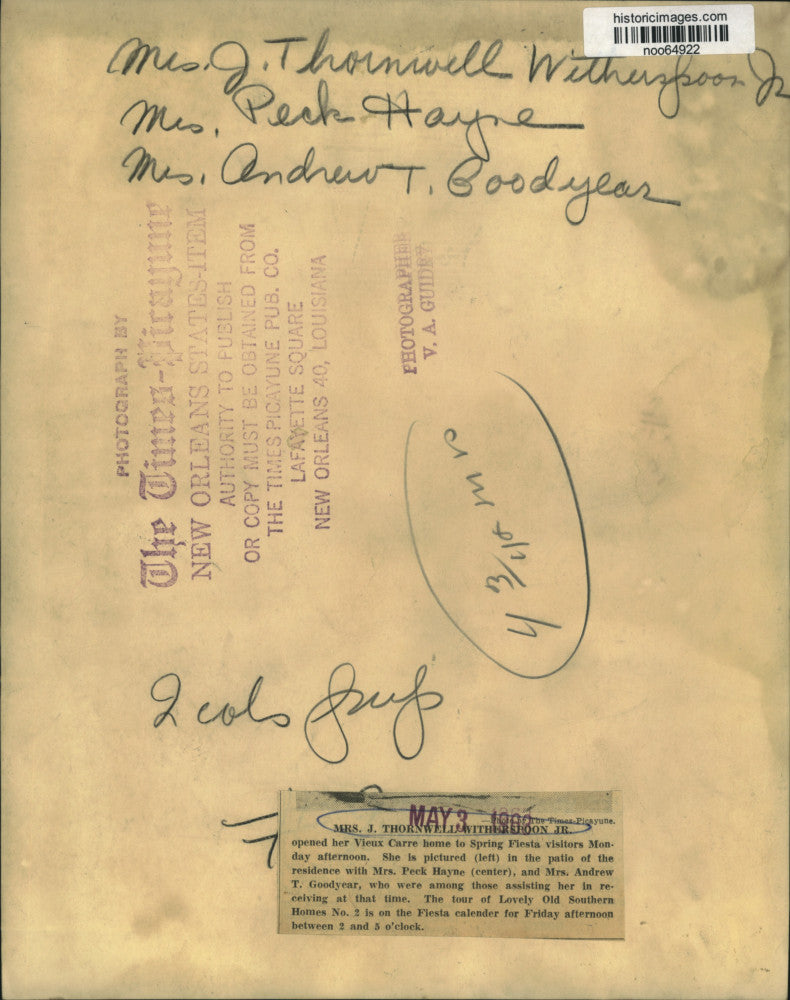 historicimages.com
noo64922
Mrs. J. Thornwell Witherspoon Jr
Mrs. Peck Hayne
Mrs. Andrew T. Goodyear
PHOTOGRAPH BY
The Times-Picayune
NEW ORLEANS STATES-ITEM
AUTHORITY TO PUBLISH
OR COPY MUST BE OBTAINED FROM
THE TIMES PICAYUNE PUB. CO.
LAFAYETTE SQUARE
NEW ORLEANS 40, LOUISIANA
PHOTOGRAPHER
V. A. GUIDRY
4 3/4
2 cols
MAY 3
—Photo by The Times-Picayune.
MRS. J. THORNWELL WITHERSPOON JR.
opened her Vieux Carre home to Spring Fiesta visitors Mon-
day afternoon. She is pictured (left) in the patio of the
residence with Mrs. Peck Hayne (center), and Mrs. Andrew
T. Goodyear, who were among those assisting her in re-
ceiving at that time. The tour of Lovely Old Southern
Homes No. 2 is on the Fiesta calender for Friday afternoon
between 2 and 5 o'clock.